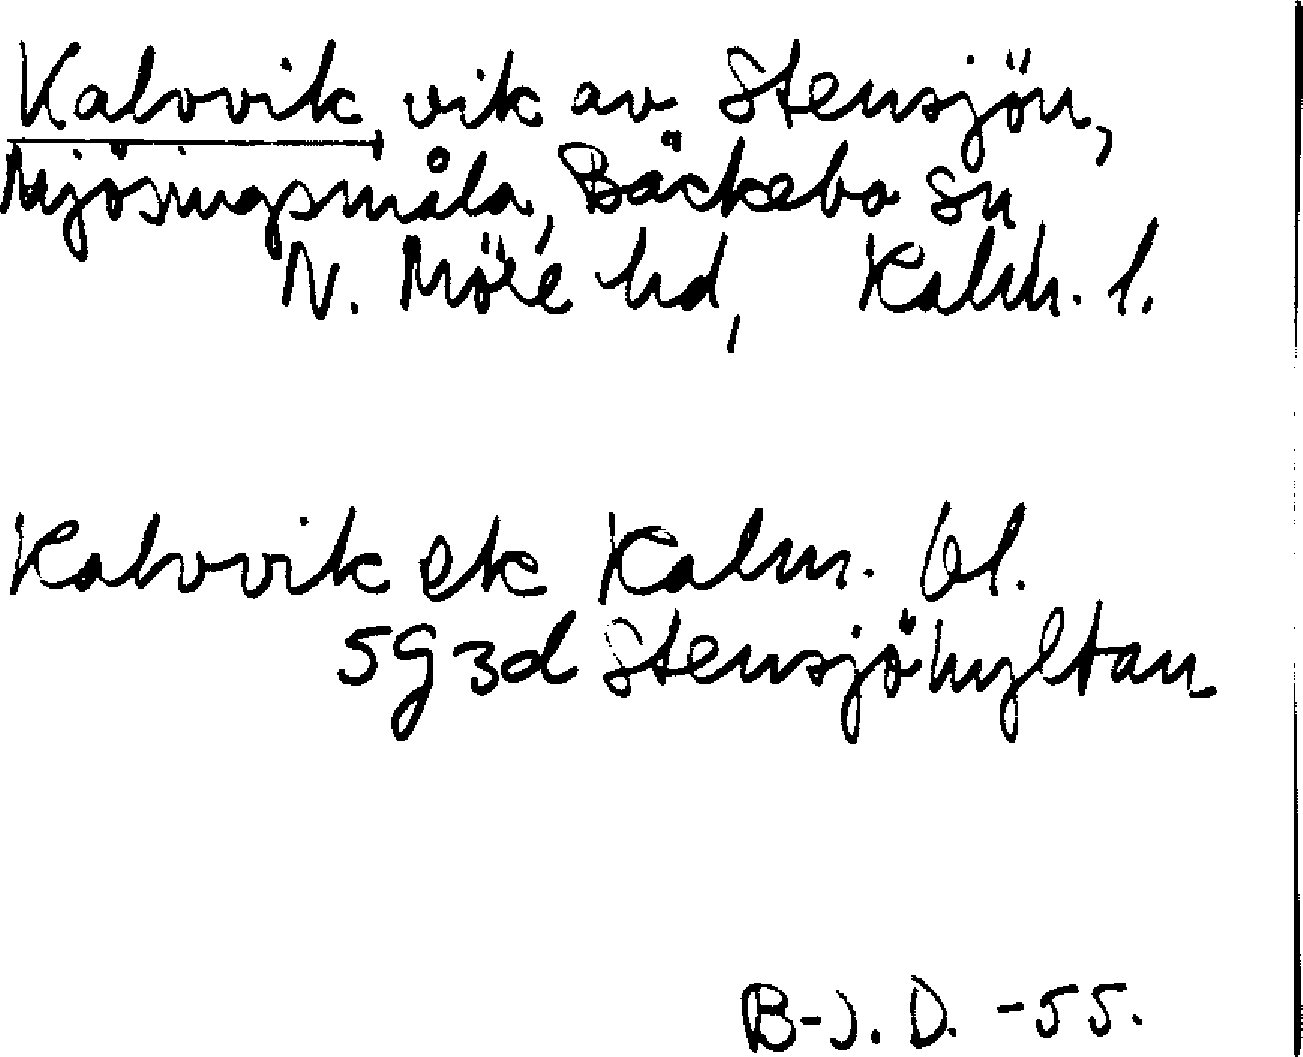 Kalvvik, vik av Stensjön,
Mjösingsmåla, Bäckebo sn
N. Möre hd, Kalm. l.
Kalvvik ek Kalm. bl.
5G3d Stensjöhyltan
B-J. D. -55.